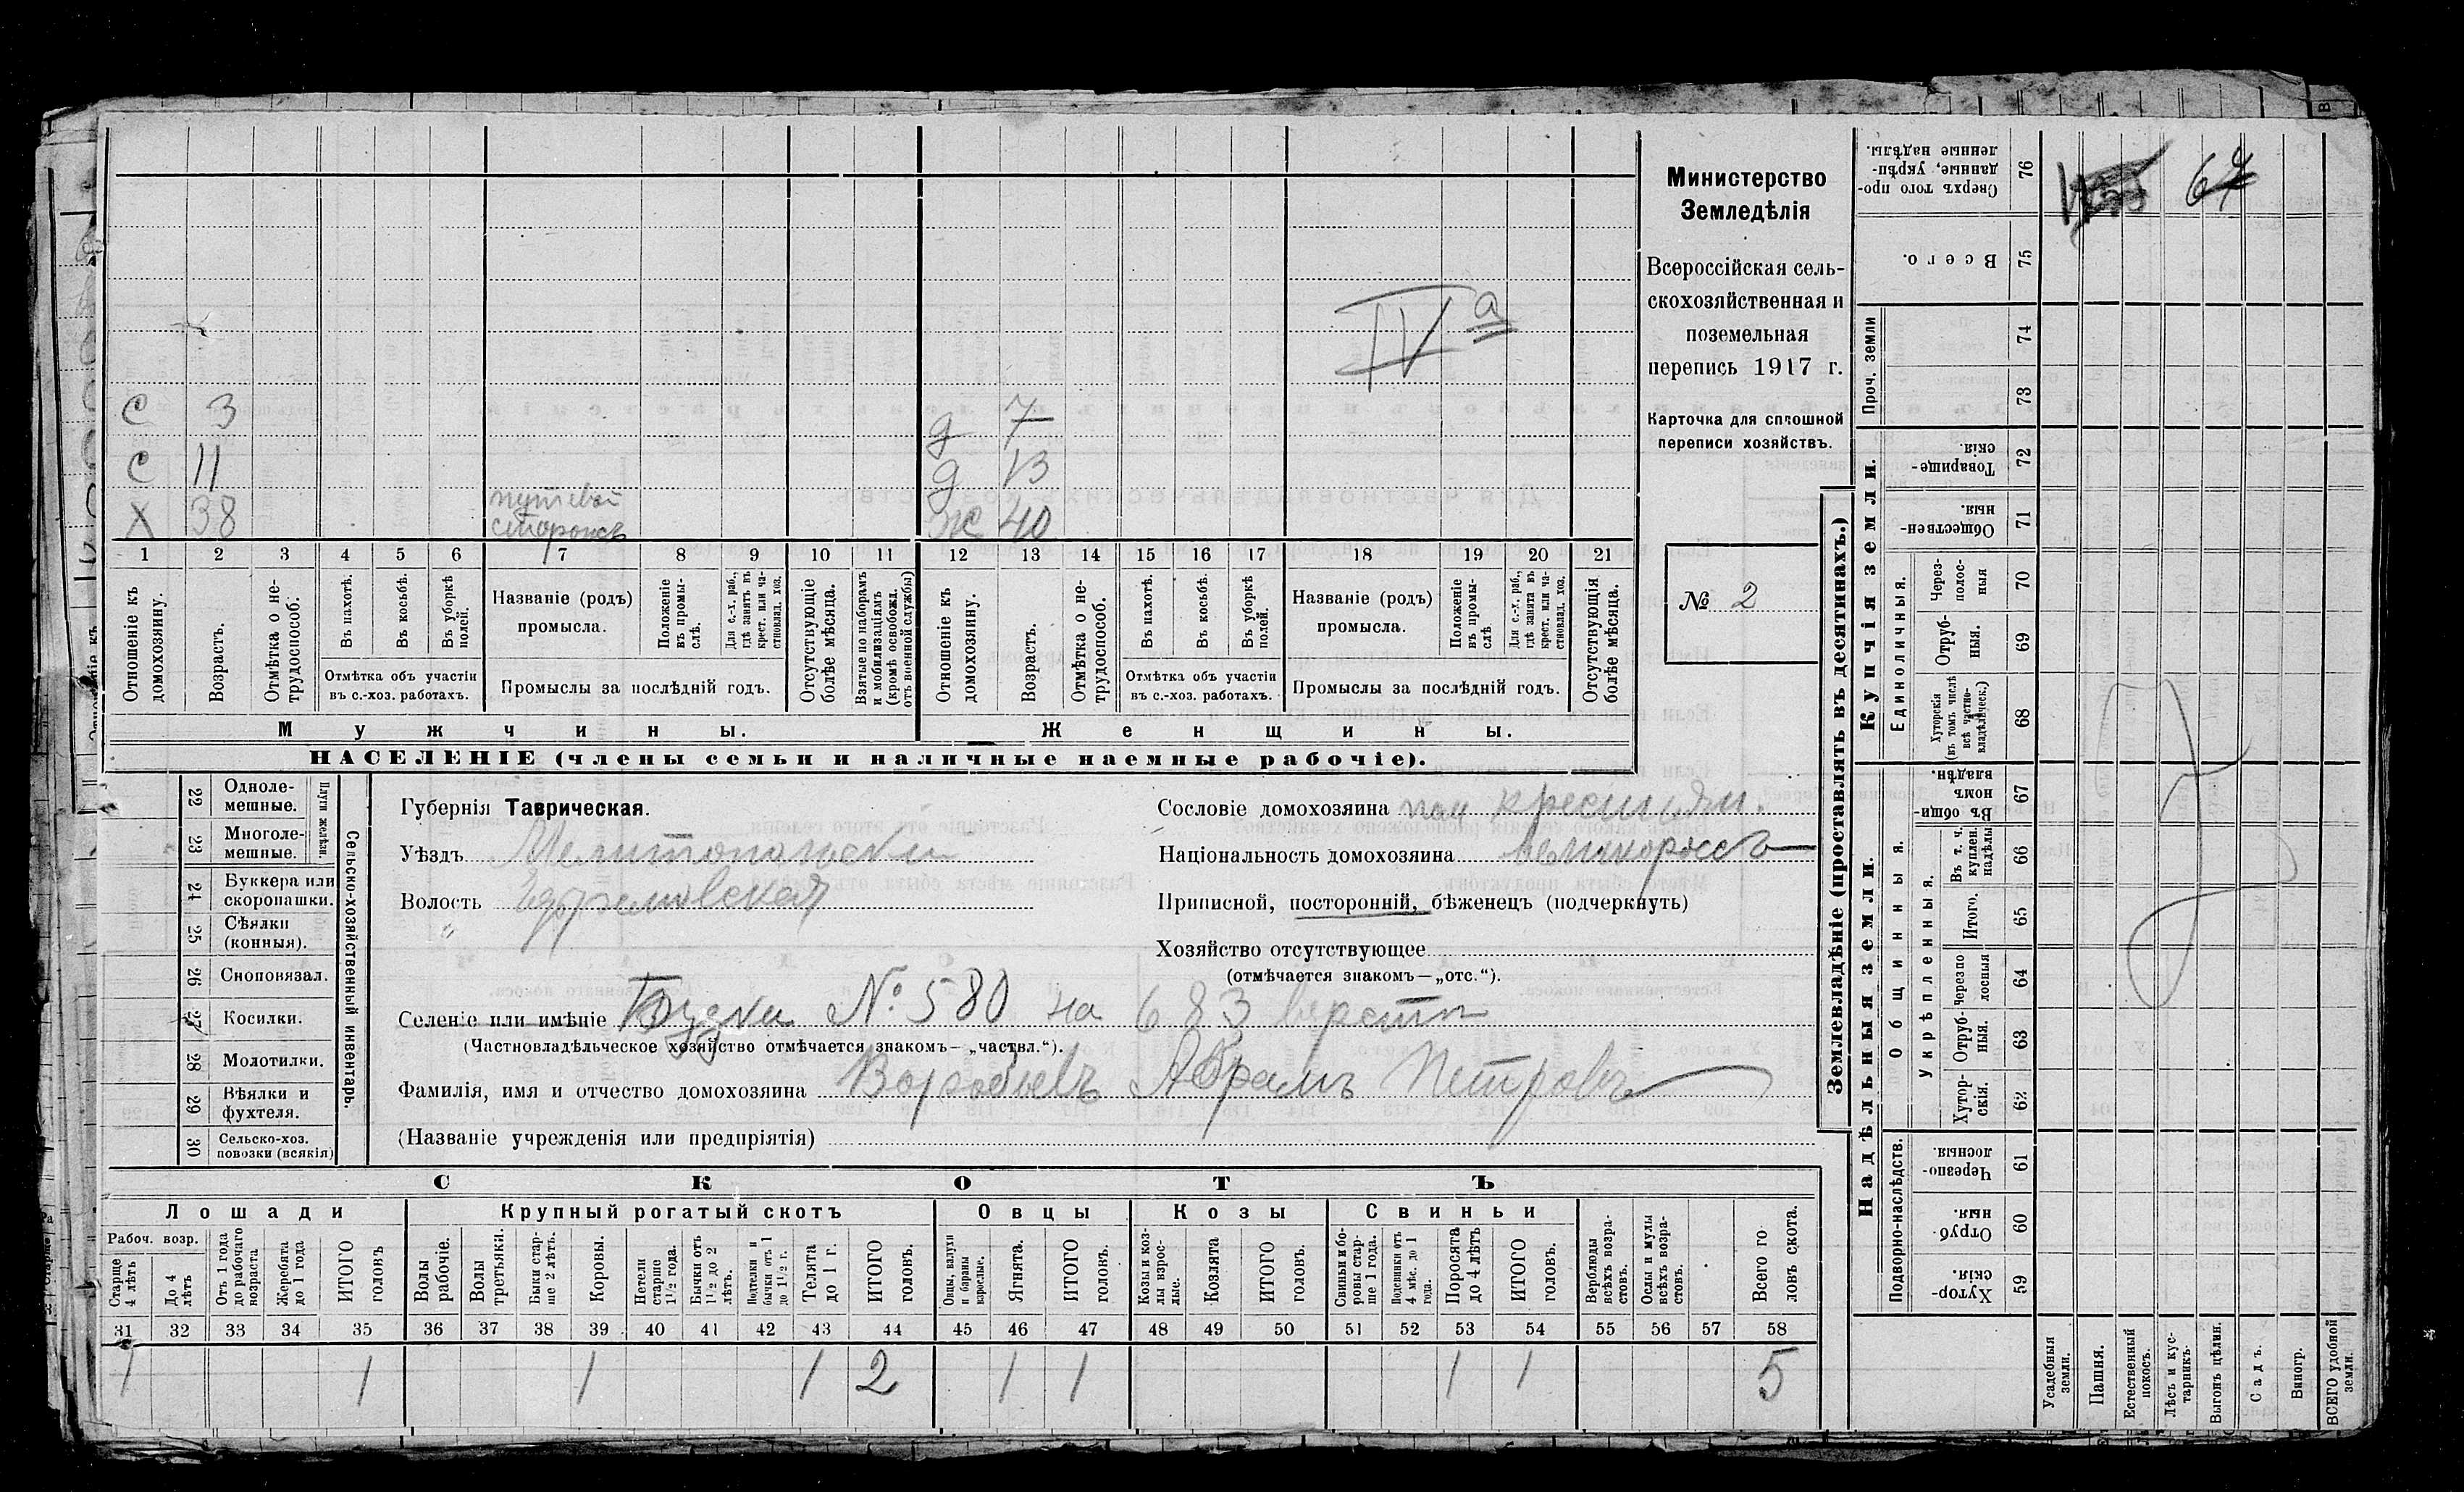 С 3
С 11
Х 38 путевой сторожъ
д 7
д 13
ж 40
IV а
1 2 3 4 5 6 7 8 9 10 11 12 13 14 15 16 17 18 19 20 21
Отношеніе къ домохозяину.
Возрастъ.
Отмѣтка о нетрудоспособ.
Въ пахотѣ.
Въ косьбѣ.
Въ уборкѣ полей.
Отмѣтка объ участіи въ с.-хоз. работахъ.
Названіе (родъ) промысла.
Положеніе въ промыслѣ.
Для с.-х. раб., гдѣ занятъ въ крест. или частновлад. хоз.
Промыслы за послѣдній годъ.
Отсутствующіе болѣе мѣсяца.
Взятые по наборамъ и мобилизаціямъ (кромѣ освобожд. отъ военной службы)
Отношеніе къ домохозяину.
Возрастъ.
Отмѣтка о нетрудоспособ.
Въ пахотѣ.
Въ косьбѣ.
Въ уборкѣ полей.
Отмѣтка объ участіи въ с.-хоз. работахъ.
Названіе (родъ) промысла.
Положеніе въ промыслѣ
Для с.-х. раб., гдѣ занята въ крест. или частновлад. хоз.
Промыслы за послѣдній годъ.
Отсутствующія болѣе мѣсяца.
Мужчины.
Женщины.
НАСЕЛЕНІЕ (члены семьи и наличные наемные рабочіе).
Министерство
Земледѣлія
Всероссійская сель-
скохозяйственная и
поземельная
перепись 1917 г.
Карточка для сплошной
переписи хозяйствъ.
№ 2
22 Одноле-мешные.
23 Многоле-мешные.
Плуги желѣзн.
24 Буккера или скоропашки.
25 Сѣялки (конныя).
26 Сноповязал.
27 Косилки.
28 Молотилки.
29 Вѣялки и фухтеля.
30 Сельско-хоз. повозки (всякія)
Сельско-хозяйственный инвентарь.
Губернія Таврическая.
Уѣздъ Мелитопольскій
Волость
Селеніе или имѣніе Будка № 580 на 683 верстѣ
(Частновладѣльческое хозяйство отмѣчается знакомъ—„частвл.“).
Фамилія, имя и отчество домохозяина Воробьевъ Абрамъ Петровъ
(Названіе учрежденія или предпріятія)
Сословіе домохозяина крестьян.
Національность домохозяина великороссъ
Приписной, посторонній, бѣженецъ (подчеркнуть)
Хозяйство отсутствующее
(отмѣчается знакомъ—„отс.“).
СКОТЪ
Лошади
Крупный рогатый скотъ
Овцы
Козы
Свиньи
Рабоч. возр.
Старше 4 лѣтъ
До 4 лѣтъ
Отъ 1 года до рабочаго возраста
Жеребята до 1 года
ИТОГО головъ
Волы рабочіе.
Волы третьяки.
Быки старше 2 лѣтъ.
Коровы.
Нетели старше 1½ года.
Бычки отъ 1½ до 2 лѣтъ.
Подтелки и бычки отъ 1 до 1½ г.
Телята до 1 г.
ИТОГО головъ.
Овцы, валухи и бараны взрослые.
Ягнята.
ИТОГО головъ.
Козы и козлы взрослые.
Козлята
ИТОГО головъ.
Свиньи и боровы старше 1 года.
Подсвинки отъ 4 мѣс. до 1 года.
Поросята до 4 лѣтъ
ИТОГО головъ.
Верблюды всѣхъ возрастовъ.
Ослы и мулы всѣхъ возрастовъ.
Всего головъ скота.
31 32 33 34 35 36 37 38 39 40 41 42 43 44 45 46 47 48 49 50 51 52 53 54 55 56 57 58
1 1 1 1 2 1 1 1 1 5
Землевладѣніе (проставлять въ десятинахъ.)
Купчія земли.
Надѣльныя земли.
Единоличныя.
Общинныя.
Укрѣпленныя.
Подворно-наслѣдств.
Проч. земли
76 Сверхъ того проданные, укрѣпленные надѣлы.
75 Всего.
74
73
72 Товарищескія
71 Общественныя.
70 Черезполосныя
69 Отрубныя.
68 Хуторскія (въ томъ числѣ всѣ частновладѣльческ.)
67 Въ общинномъ владѣн.
66 Въ т. ч. куплен. надѣлы
65 Итого.
64 Черезполосныя
63 Отрубныя.
62 Хуторскія.
61 Черезполосныя
60 Отрубныя.
59 Хуторскія.
Усадебныя земли.
Пашня.
Естественный покосъ.
Лѣсъ и кустарникъ.
Выгонъ цѣлин.
Садъ.
Виногр.
ВСЕГО удобной земли.